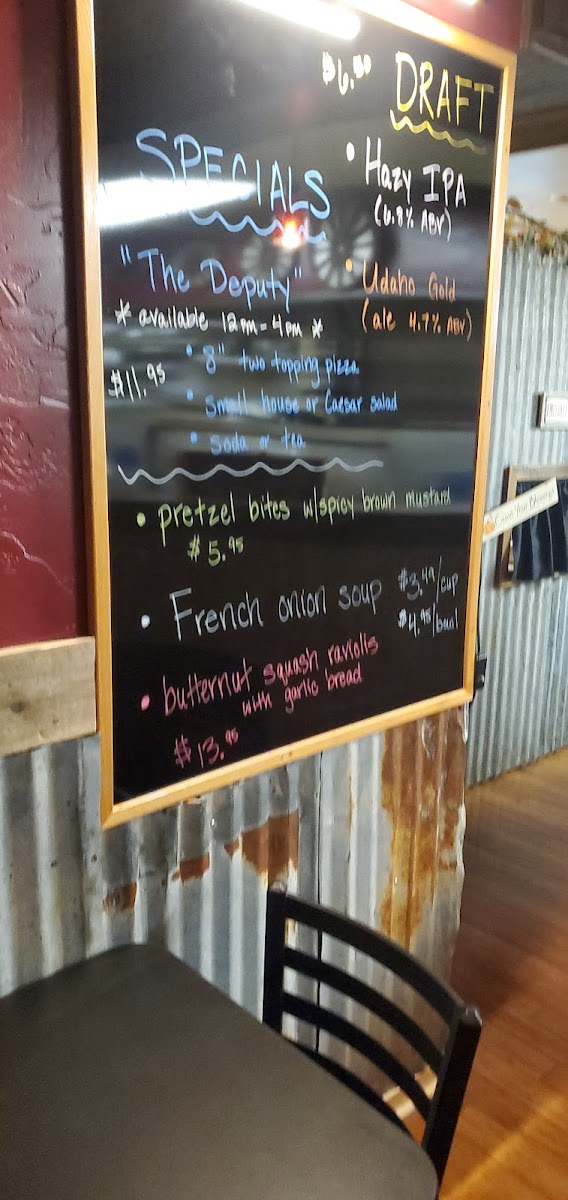 $6.50 DRAFT
• Hazy IPA
(6.8% ABV)
• Udaho Gold
(ale 4.7% ABV)
SPECIALS
"The Deputy"
* available 12pm - 4pm *
$11.95
• 8" two topping pizza
• Small house or Caesar salad
• Soda or tea
• pretzel bites w/spicy brown mustard
$5.95
• French onion soup $3.49/cup
$4.95/bowl
• butternut squash raviolis
with garlic bread
$13.95
Count Your Blessings